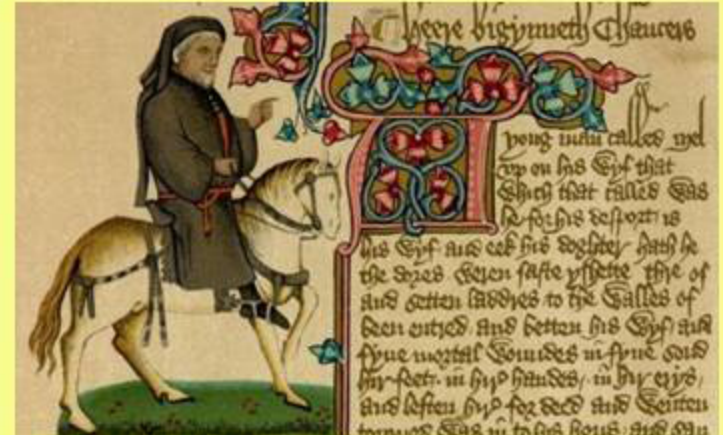 Heere bigynneth Chaucers
yong man called mel
vp on his wyf that
which that called was
he for his desport is
his wyf and eek his doghter hath he
the dores weren faste yshette thre of
and setten laddres to the walles of
been entred and betten his wyf and
fyue mortal woundes in fyue sond
hir feet in hir handes in hir erys
and leften hir for deed and wenten
torned was in to his hous and sau